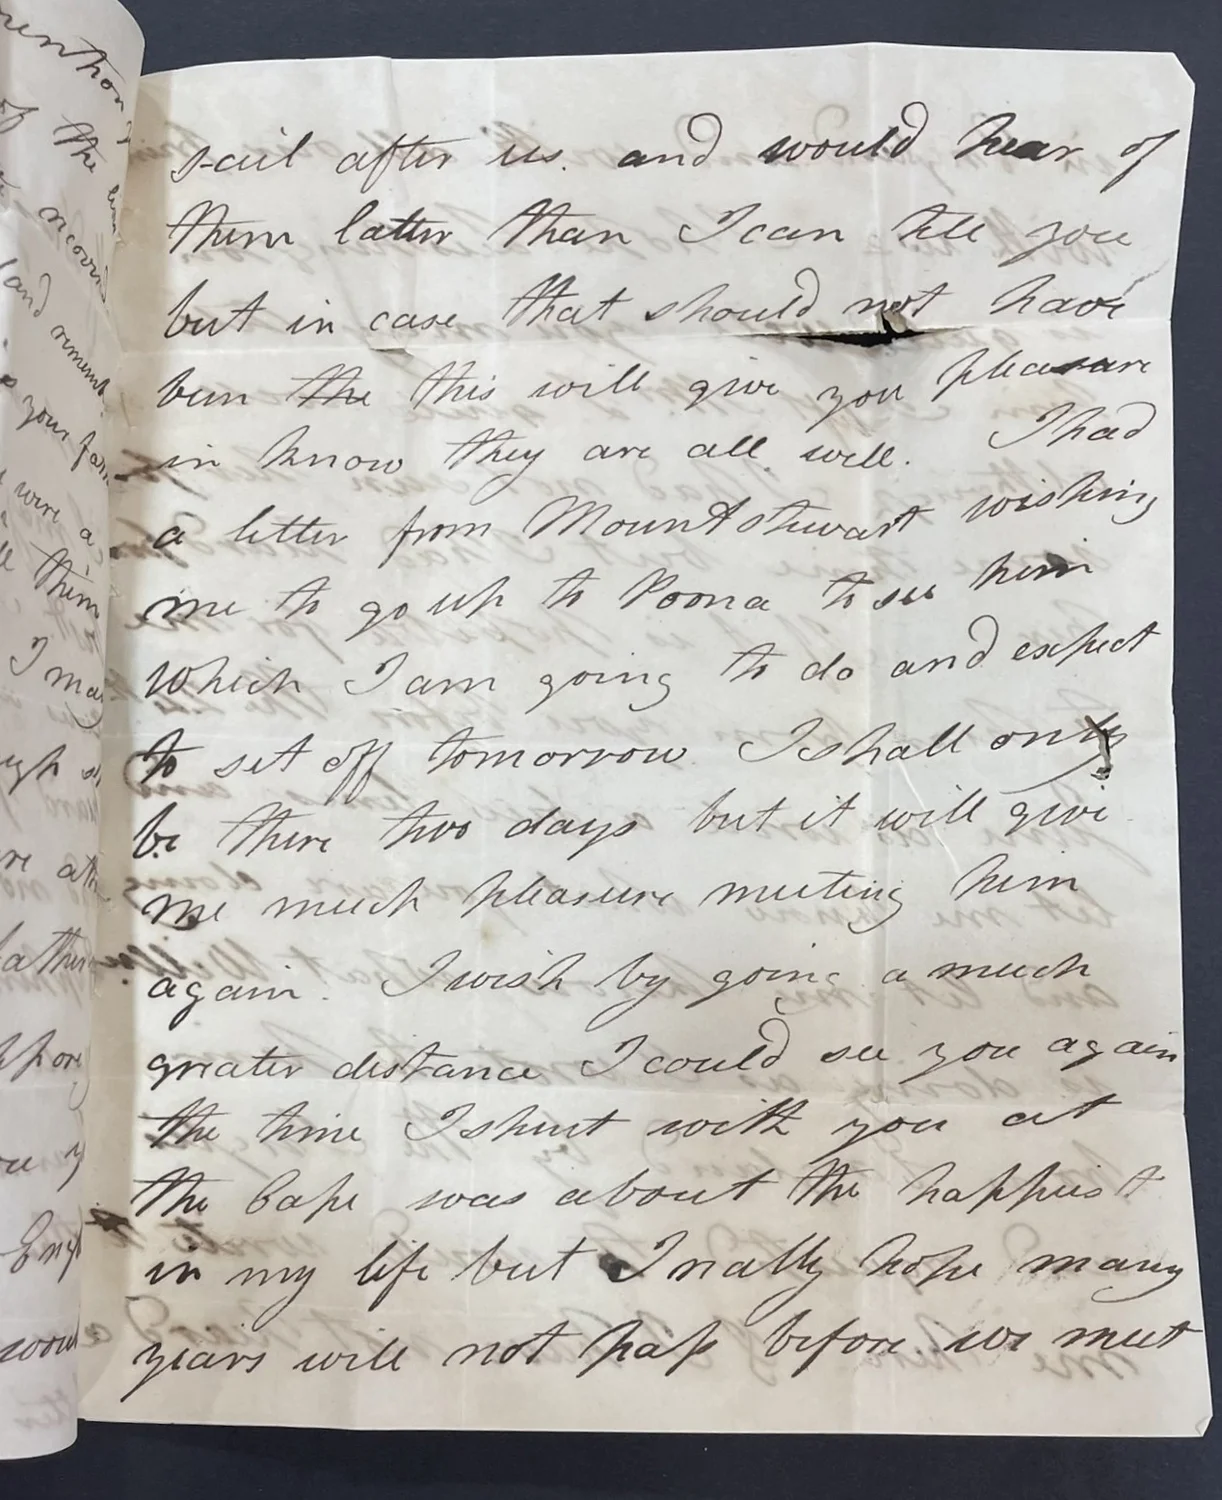 sail after us. and would hear of
them latter than I can tell you
but in case that should not have
been the this will give you pleasure
in know they are all well. I had
a letter from Mountstewart wishing
me to go up to Poona to see him
which I am going to do and expect
to set off tomorrow I shall only
be there two days but it will give
me much pleasure meeting him
again. I wish by going a much
greater distance I could see you again
the time I spent with you at
the Cape was about the happiest
in my life but I really hope many
years will not pass before we meet
of the
and
your
were a
them
I may